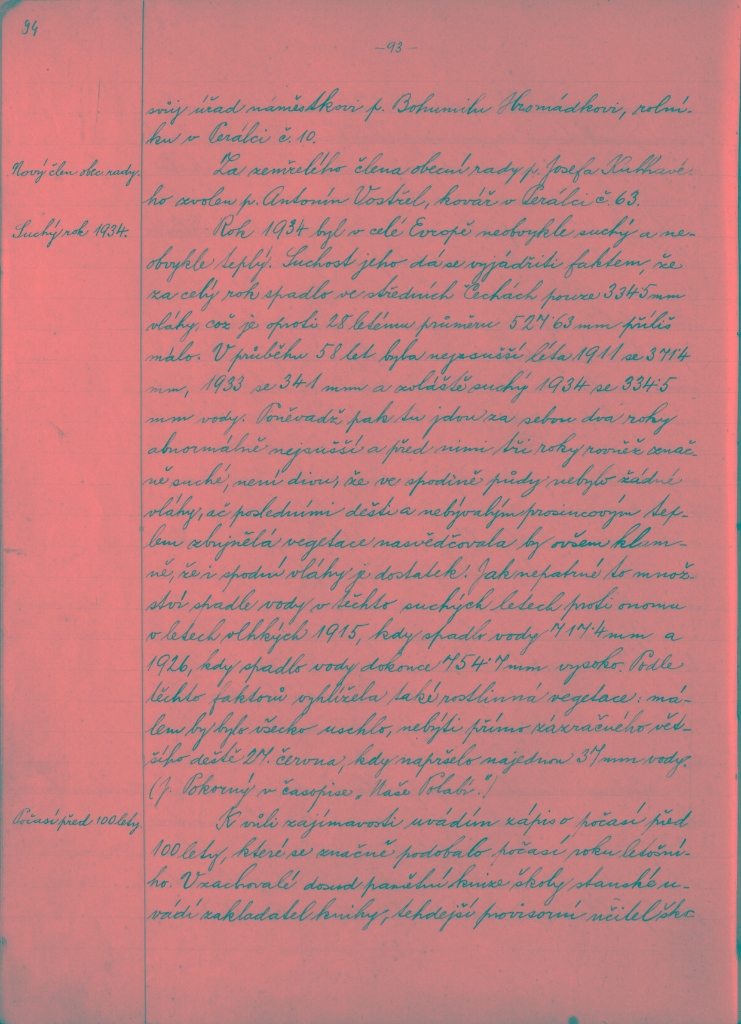 94
-93-
svůj úřad náměstkovi p. Bohumilu Hromádkovi, rolní-
ku v Perálci č. 10.
Nový člen obec. rady.
Za zemřelého člena obecní rady p. Josefa
ho zvolen p. Antonín Vostřel, kovář v Perálci č. 63.
Suchý rok 1934.
Rok 1934 byl v celé Evropě neobvykle suchý a ne-
obvykle teplý. Suchost jeho dá se vyjádřiti faktem, že
za celý rok spadlo ve středních Čechách pouze 334·5 mm
vláhy, což je oproti 28 letému průměru 527·63 mm příliš
málo. V průběhu 58 let byla nejsušší léta 1911 se 371·4
mm, 1933 se 341 mm a zvláště suchý 1934 se 334·5
mm vody. Poněvadž pak tu jdou za sebou dva roky
abnormálně nejsušší a před nimi tři roky rovněž znač-
ně suché, není divu, že ve spodině půdy nebylo žádné
vláhy, ač posledními dešti a nebývalým prosincovým tep-
lem zbujnělá vegetace nasvědčovala by ovšem klam-
ně, že i spodní vláhy je dostatek. Jak nepatrné to množ-
ství spadle vody v těchto suchých letech proti onomu
v letech vlhkých 1915, kdy spadlo vody 717·4 mm a
1926, kdy spadlo vody dokonce 754·7 mm vysoko. Podle
těchto faktorů vyhlížela také rostlinná vegetace: má-
lem by bylo všecko uschlo, nebýti přímo zázračného vět-
šího deště 27. června, kdy napršelo najednou 37 mm vody.
(J. Pokorný v časopise „Naše Polabí“.)
Počasí před 100 lety.
K vůli zajímavosti uvádím zápis o počasí před
100 lety, které se značně podobalo počasí roku letošní-
ho. V zachovalé dosud pamětní knize školy stanské u-
vádí zakladatel knihy, tehdejší provisorní učitel ško-